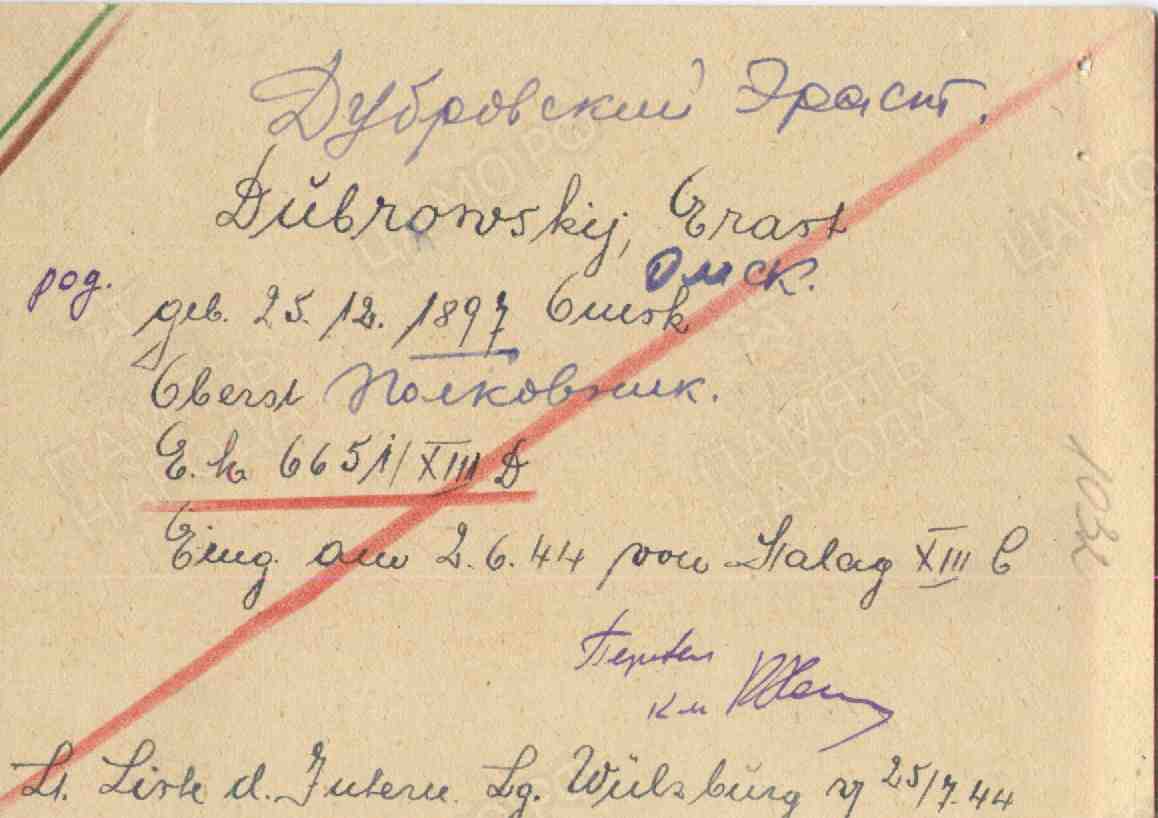 Дубровский Эраст.
Dŭbrowskij, Erast
род. Омск.
geb. 25. 12. 1897 Omsk
Oberst Полковник.
E.k 6651/XIII D
Eing. am 2.6.44 von Stalag XIII C
1032
Перевел
Lt. Liste d. Intern. Lg. Wülzbürg v 25/7.44